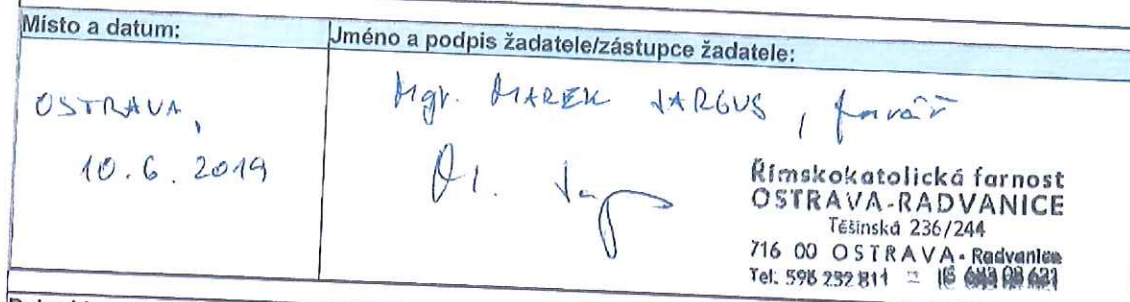 Místo a datum:
Jméno a podpis žadatele/zástupce žadatele:
OSTRAVA,
10.6.2019
Mgr. MAREK JARGUS, farář
Římskokatolická farnost
OSTRAVA-RADVANICE
Těšínská 236/244
716 00 OSTRAVA-Radvanice
Tel: 596 232 811